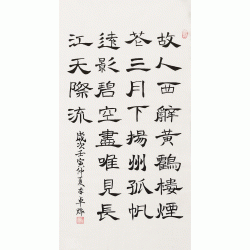 故人西辭黃鶴樓煙
花三月下揚州孤帆
遠影碧空盡唯見長
江天際流
歲次壬寅仲夏